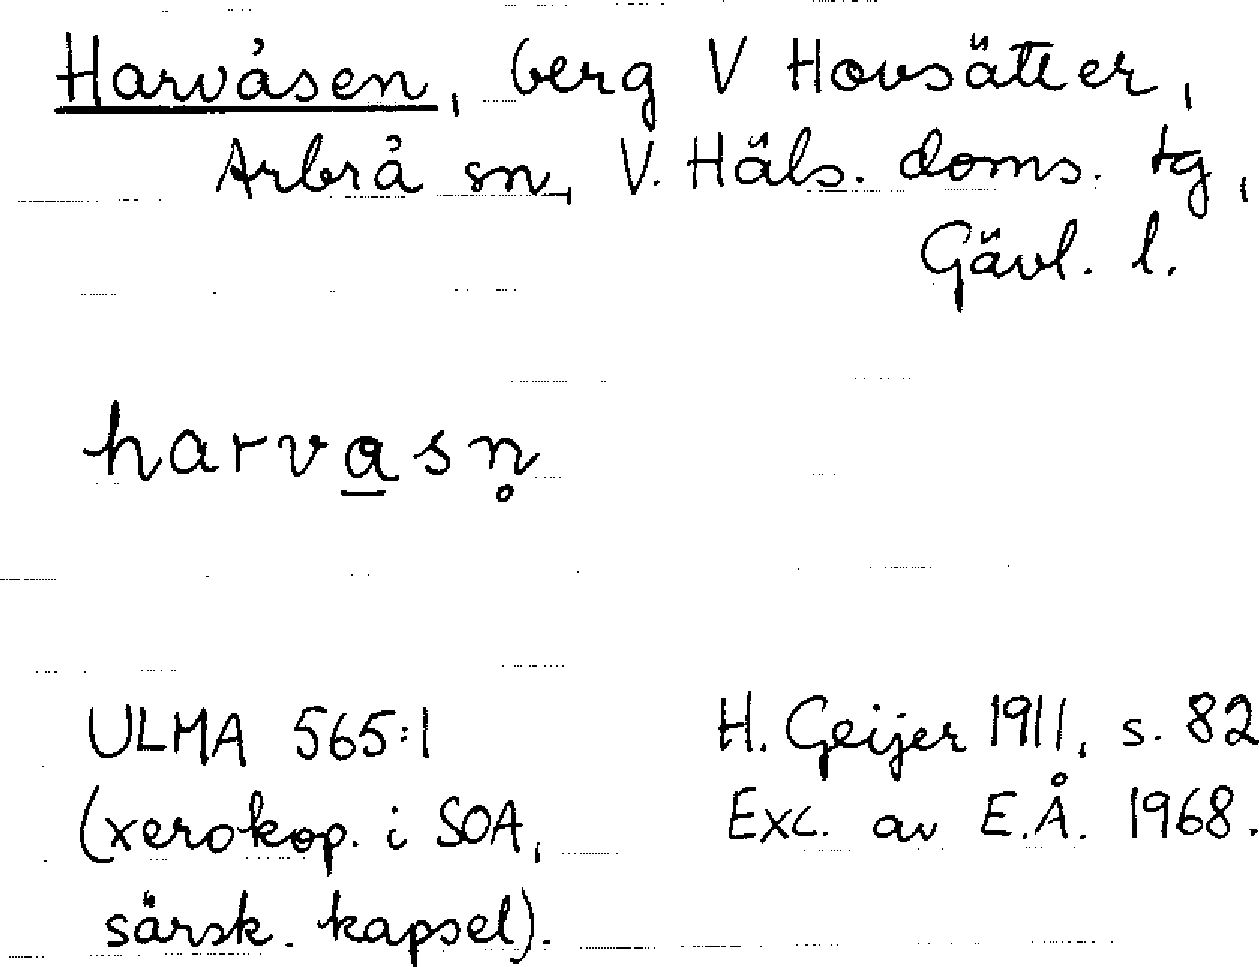 Harvåsen, berg V Hovsätter,
Arbrå sn, V. Häls. doms. tg,
Gävl. l.
harva̲sn̥
ULMA 565:1
(xerokop. i SOA,
särsk. kapsel).
H. Geijer 1911, s. 82
Exc. av E.Å. 1968.